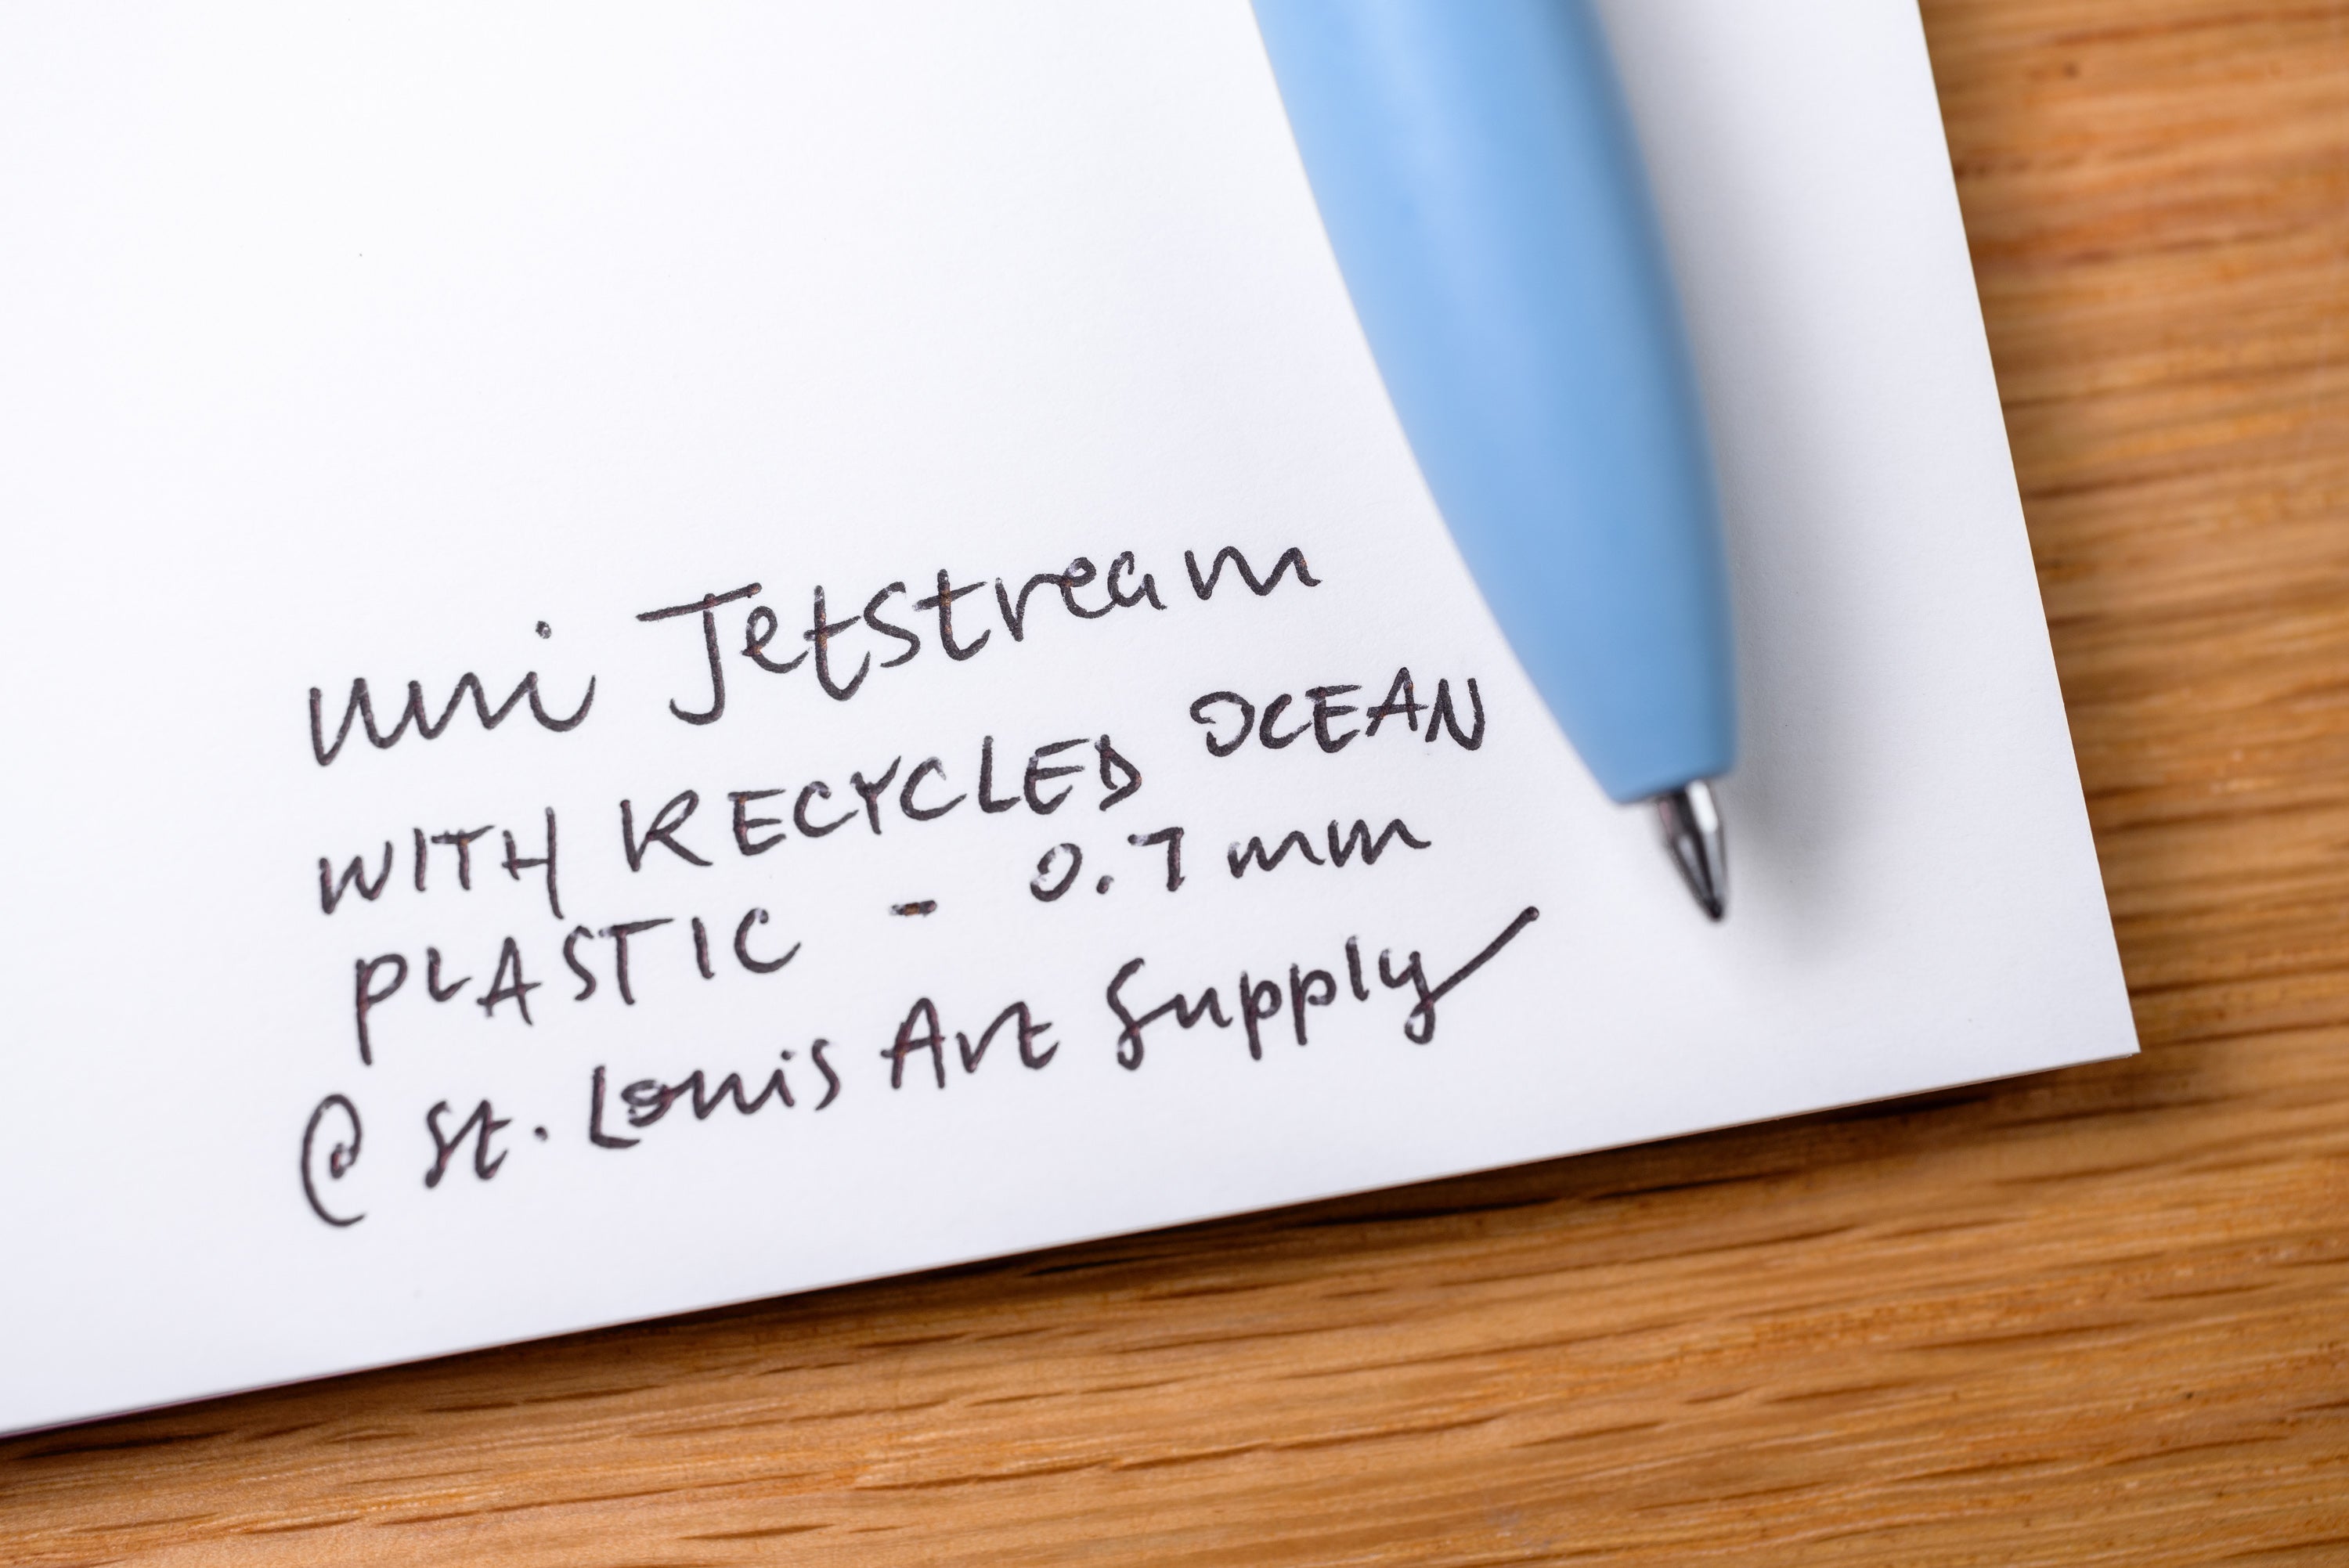 uni Jetstream
WITH RECYCLED OCEAN
PLASTIC - 0.7 mm
@ St. Louis Art Supply